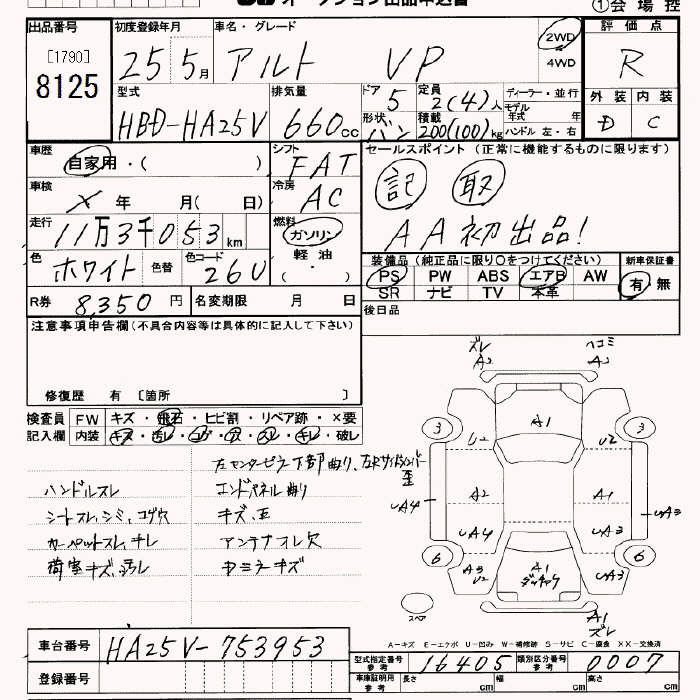 ①会場控
出品番号
[1790]
8125
初度登録年月
25年5月
車名・グレード
アルト VP
2WD
4WD
評価点
R
外装 内装
D C
型式
HBD-HA25V
排気量
660cc
ドア
5
形状
バン
定員
2(4)人
積載
200(100)kg
ディーラー・並行
モデル年式 年
ハンドル 左・右
車歴
自家用・( )
シフト
FAT
車検
X年 月( 日)
冷房
AC
走行
11万3千053km
燃料
ガソリン
軽油
( ・ )
色
ホワイト
色替
色コード
26U
R券 8,350円
名変期限 月 日
セールスポイント (正常に機能するものに限ります)
記 取
AA初出品!
装備品(純正品に限り○をつけてください)
PS PW ABS エアB AW
SR ナビ TV 本革
新車保証書
有・無
後日品
注意事項申告欄(不具合内容等は具体的に記入して下さい)
修復歴 有 [箇所 ]
検査員記入欄
FW キズ・飛石・ヒビ割・リペア跡・×要
内装 キズ・汚レ・コゲ・穴・スレ・キレ・破レ
左センターピラー下部曲り、左右サイドメンバー歪
ハンドルスレ エンドパネル曲り
シートスレ、シミ、コゲ穴 キズ、歪
カーペットスレ、キレ アンテナオレ欠
荷室キズ、汚レ
ズレ
A2
ヘコミ
A2
A1
3 3
U2 U2
A2 A1
UA4 UA3
UA4 UA3
6 6
A3 U2
A1
UA3
スペア
A1
ズレ
A−キズ E−エクボ U−凹み W−補修跡 S−サビ C−腐食 XX−交換済
車台番号 HA25V-753953
登録番号
型式指定番号 参考 16405
類別区分番号 参考 0007
車庫証明用 参考 長さ cm 幅 cm 高さ cm